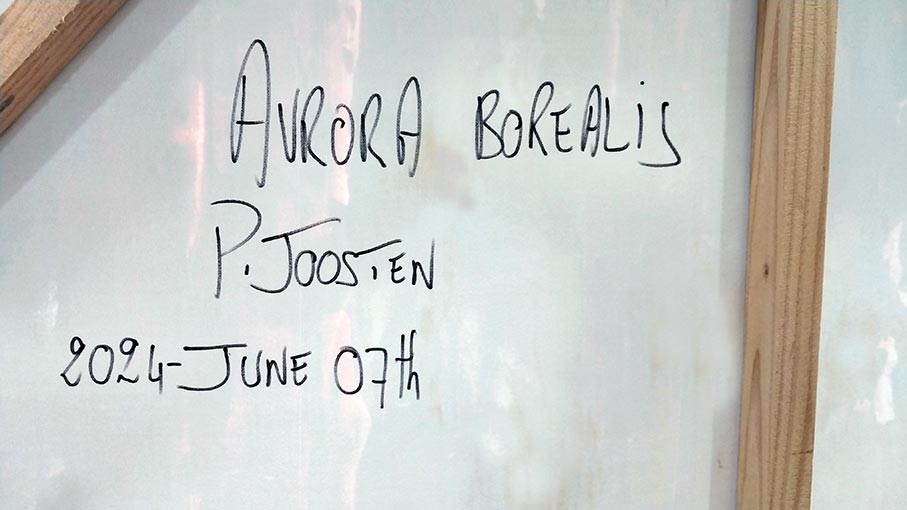 AURORA BOREALiS
P. JOOSTEN
2024-JUNE 07th